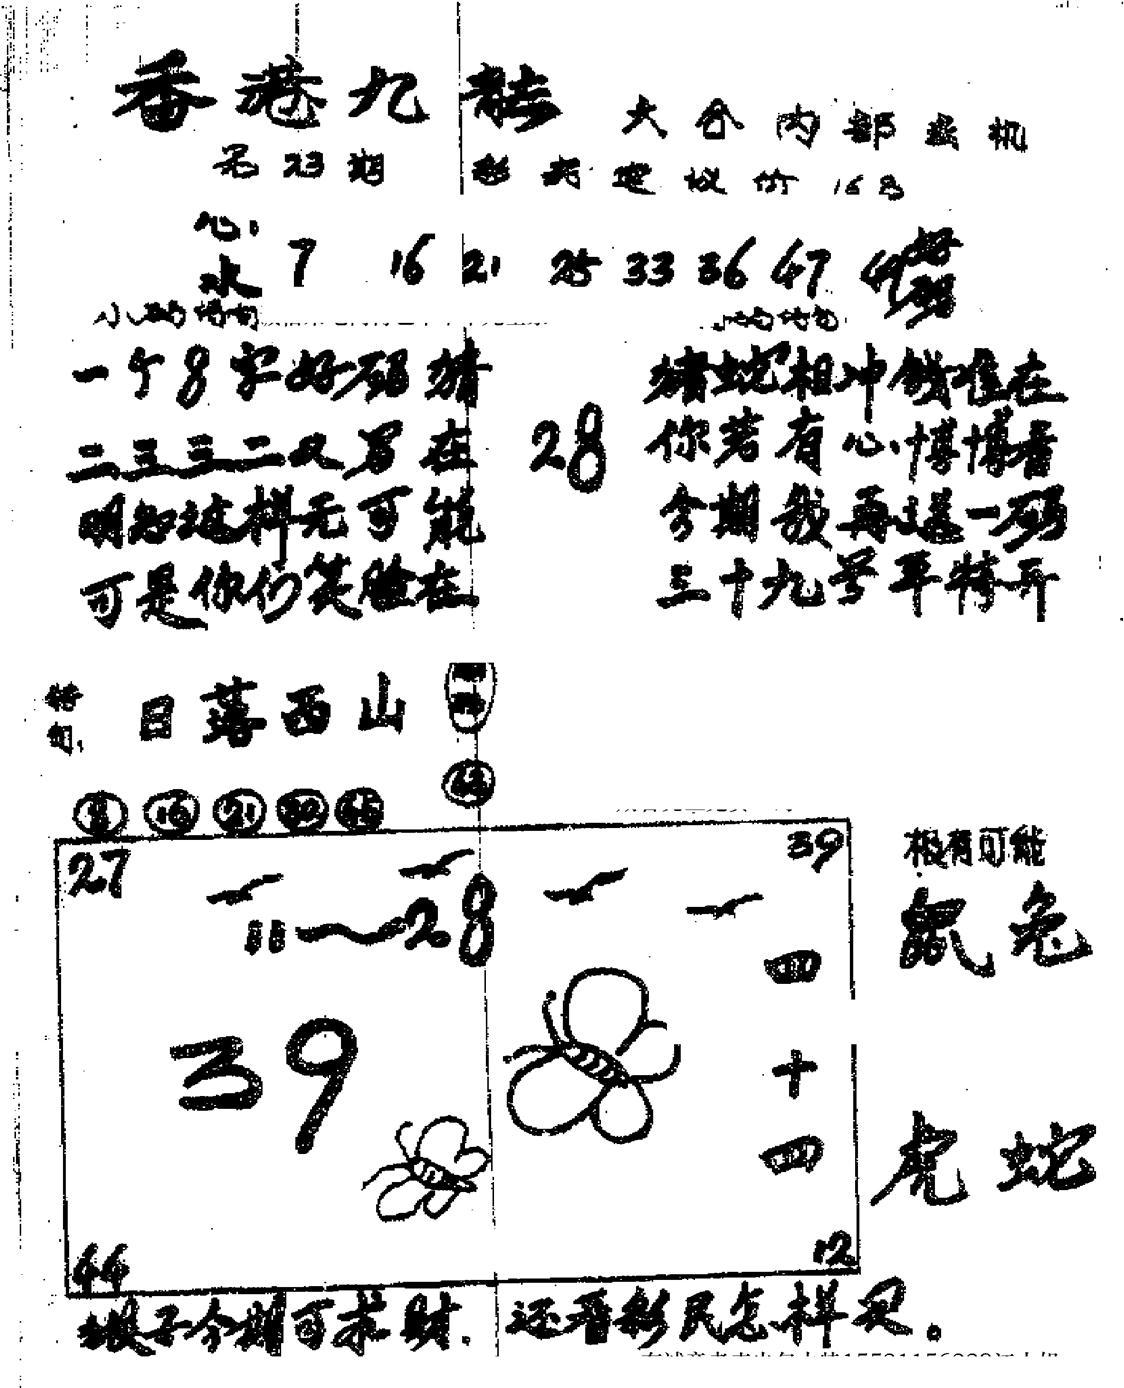 香港九龙
大公内部玄机
第23期 彩民建议价16多
心水 7 16 21 25 33 36 47 49 好码
小码诗句
一个8字好码猜
二三三二又另在
明知这样无可能
可是你们笑脸在
28
猪蛇相冲钱难在
你若有心博博看
今期我再送一码
三十九号平特开
特句
日落西山
8 16 21 32 45
27 39
11~28
39
四十四
44 12
很有可能
鼠兔
虎蛇
棍子今期可求财.还看彩民怎样灵。